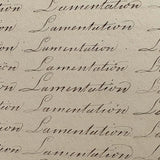 Lamentation
Lamentation
Lamentation
Lamentation
Lamentation
Lamentation
Lamentation
Lamentation